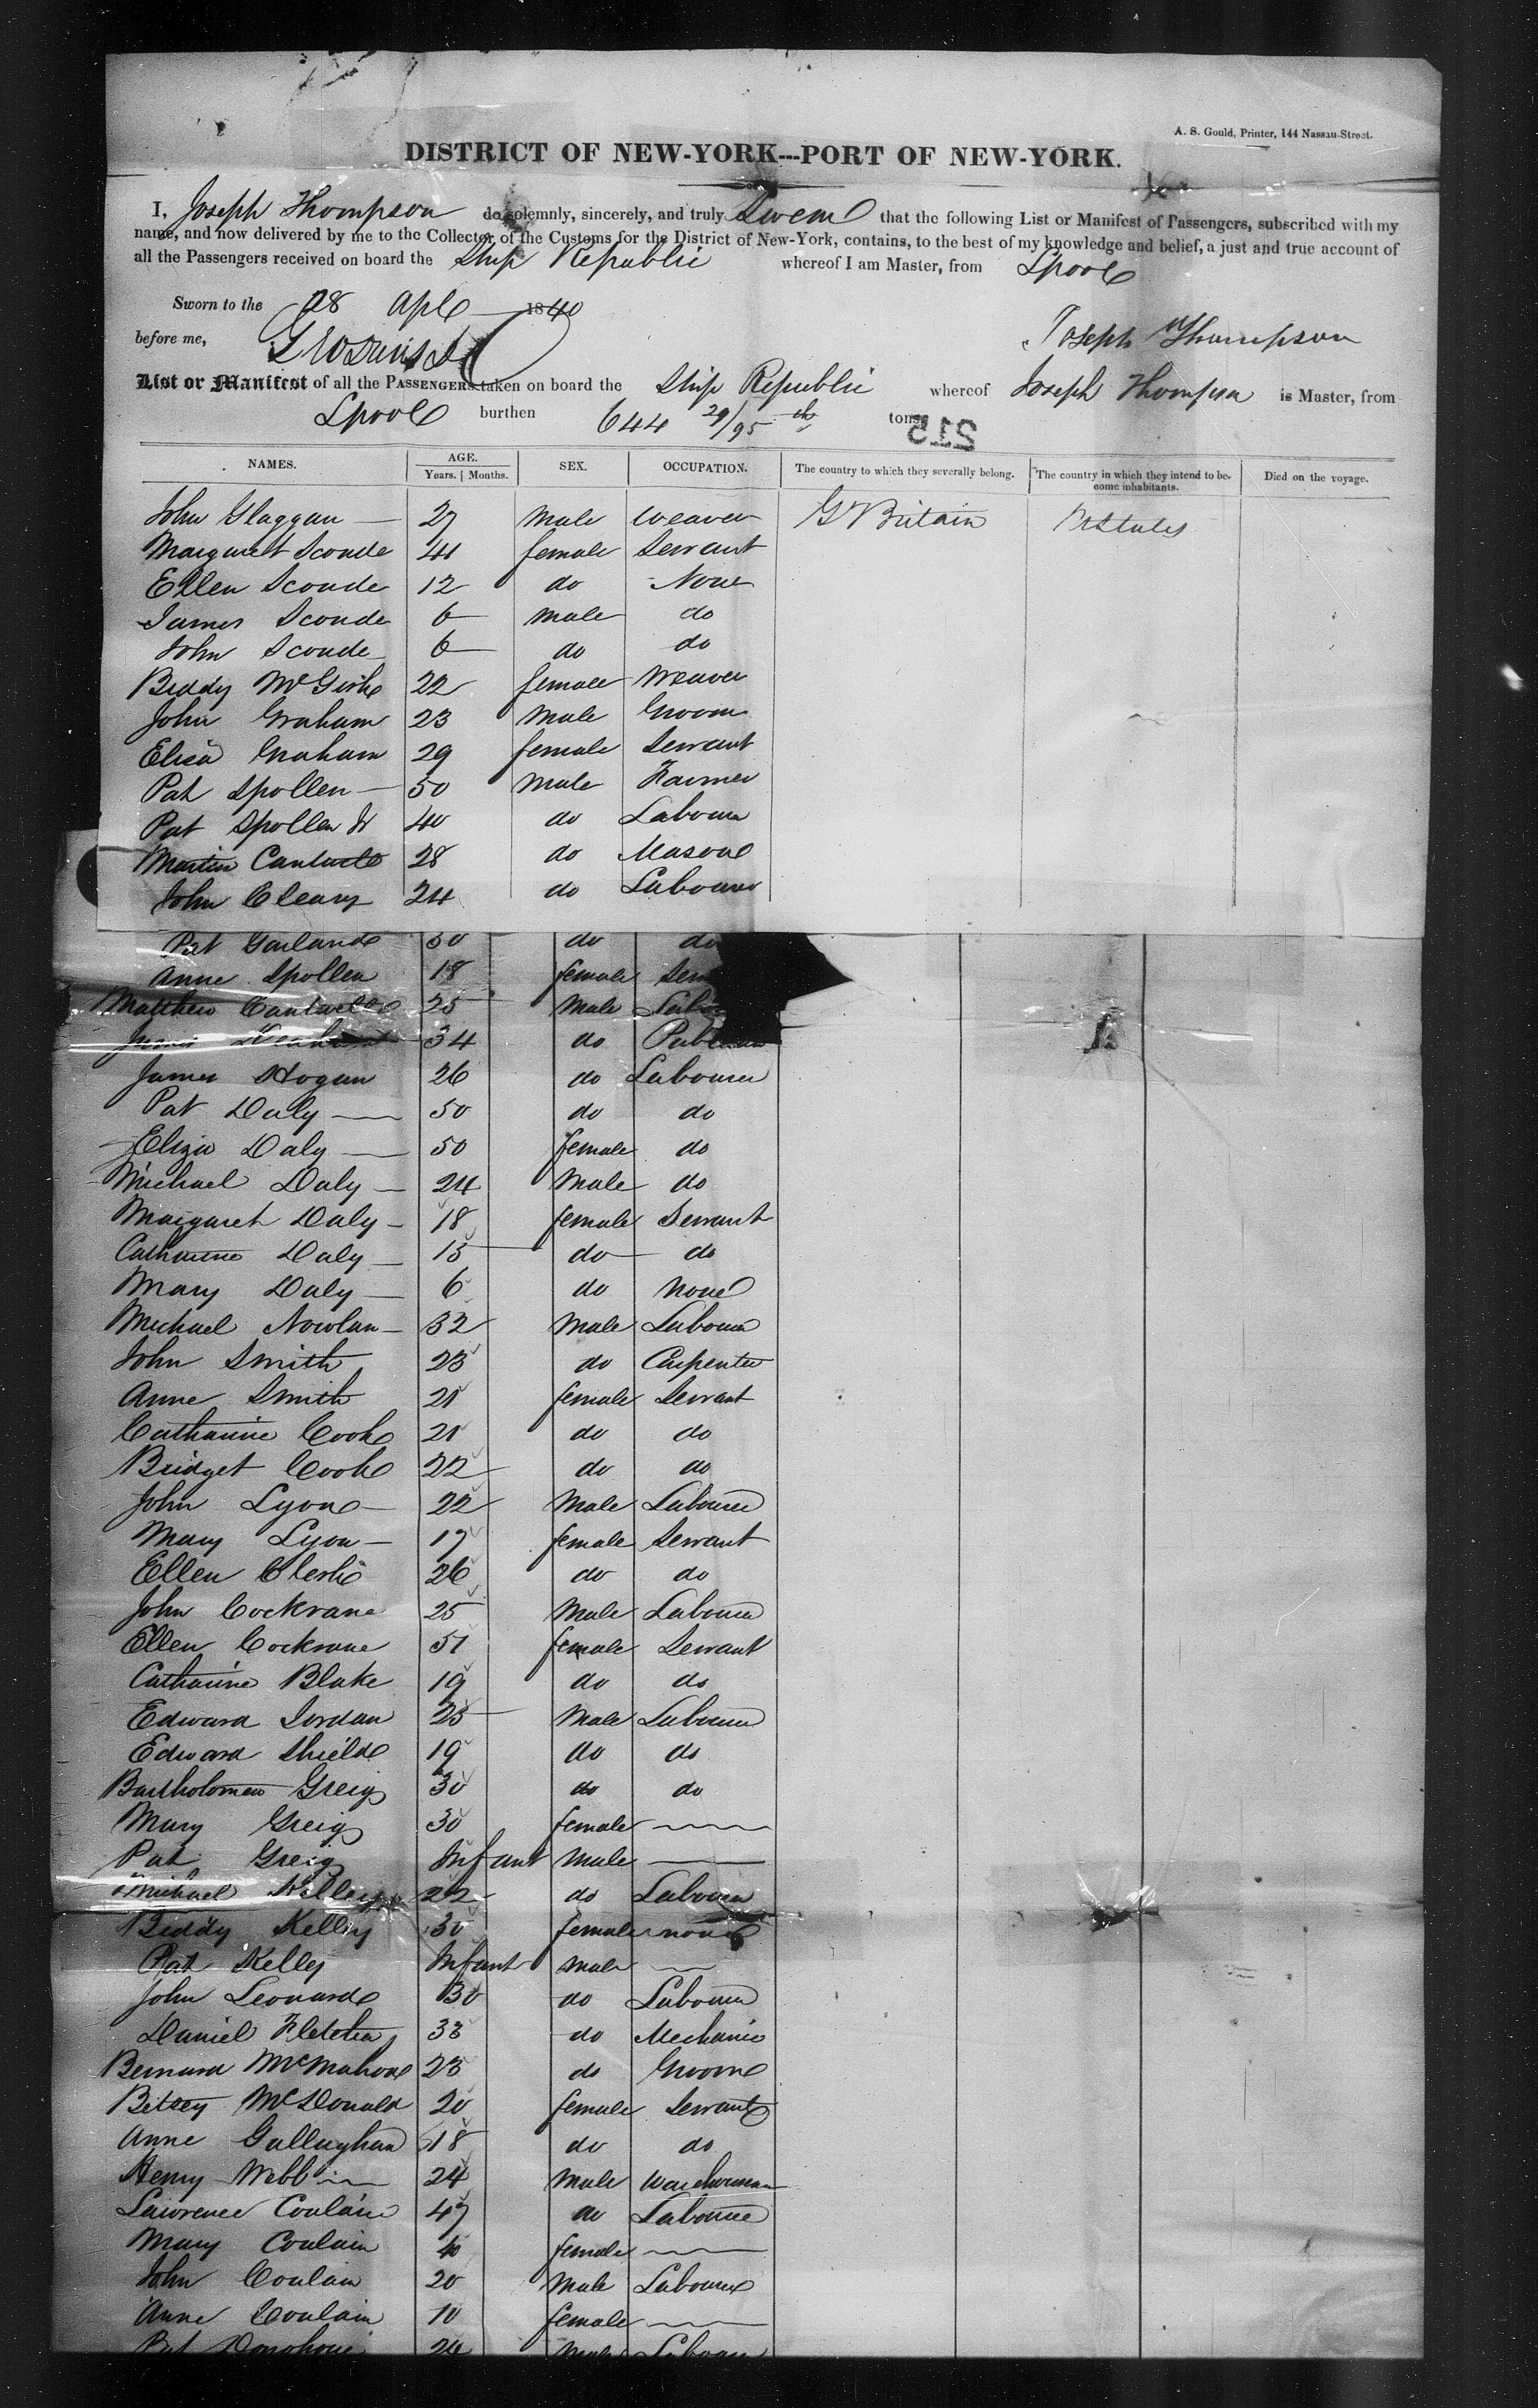 A. S. Gould, Printer, 144 Nassau-Street.
DISTRICT OF NEW-YORK---PORT OF NEW-YORK.
I, Joseph Thompson do solemnly, sincerely, and truly Swear that the following List or Manifest of Passengers, subscribed with my
name, and now delivered by me to the Collector of the Customs for the District of New-York, contains, to the best of my knowledge and belief, a just and true account of
all the Passengers received on board the Ship Republic whereof I am Master, from Lpool
Sworn to the 28 Apl 1840
before me,
Joseph Thompson
List or Manifest of all the PASSENGERS taken on board the Ship Republic whereof Joseph Thompson is Master, from
Lpool burthen 644 29/95 th tons
215
NAMES. AGE. SEX. OCCUPATION. The country to which they severally belong. The country in which they intend to become inhabitants. Died on the voyage.
Years. Months.
John Glaggan 27 Male Weaver G Britain UStates
Margaret Scoude 41 female Servant
Ellen Scoude 12 do None
James Scoude 6 Male do
John Scoude 6 do do
Biddy 22 female Weaver
John Graham 23 Male Groom
Eliza Graham 29 female Servant
Pat Spollen 50 Male Farmer
Pat Spollen Jr 40 do Labourer
Martin Cantwell 28 do Mason
John Cleary 24 do Labourer
Pat Garland 30 do do
Anne Spollen 18 female
Matthew Cantwell 25 Male
34 do
James Hogan 26 do Labourer
Pat Daly 50 do do
Eliza Daly 50 female do
Michael Daly 24 Male do
Margaret Daly 18 female Servant
Catharine Daly 15 do do
Mary Daly 6 do None
Michael Nowlan 32 Male Labourer
John Smith 23 do Carpenter
Anne Smith 21 female Servant
Catharine Cook 21 do do
Bridget Cook 22 do do
John Lyon 22 Male Labourer
Mary Lyon 17 female Servant
Ellen Clerk 26 do do
John Cockrane 25 Male Labourer
Ellen Cockrane 51 female Servant
Catharine Blake 19 do do
Edward Jordan 25 Male Labourer
Edward Shield 19 do do
Bartholomew Greig 30 do do
Mary Greig 30 female
Pat Greig Infant Male
Michael Kelley 22 do Labourer
Biddy Kelley 30 female none
Pat Kelley Infant Male
John Leonard 30 do Labourer
Daniel Fletcher 33 do Mechanic
Bernard McMahon 23 do Groom
Betsey McDonald 20 female Servant
Anne Gallaghan 18 do do
Henry Webb 24 Male Warehouseman
Lawrence Coulain 47 do Labourer
Mary Coulain 40 female
John Coulain 20 Male Labourer
Anne Coulain 10 female
Pat Donohoue 24 Male Labourer